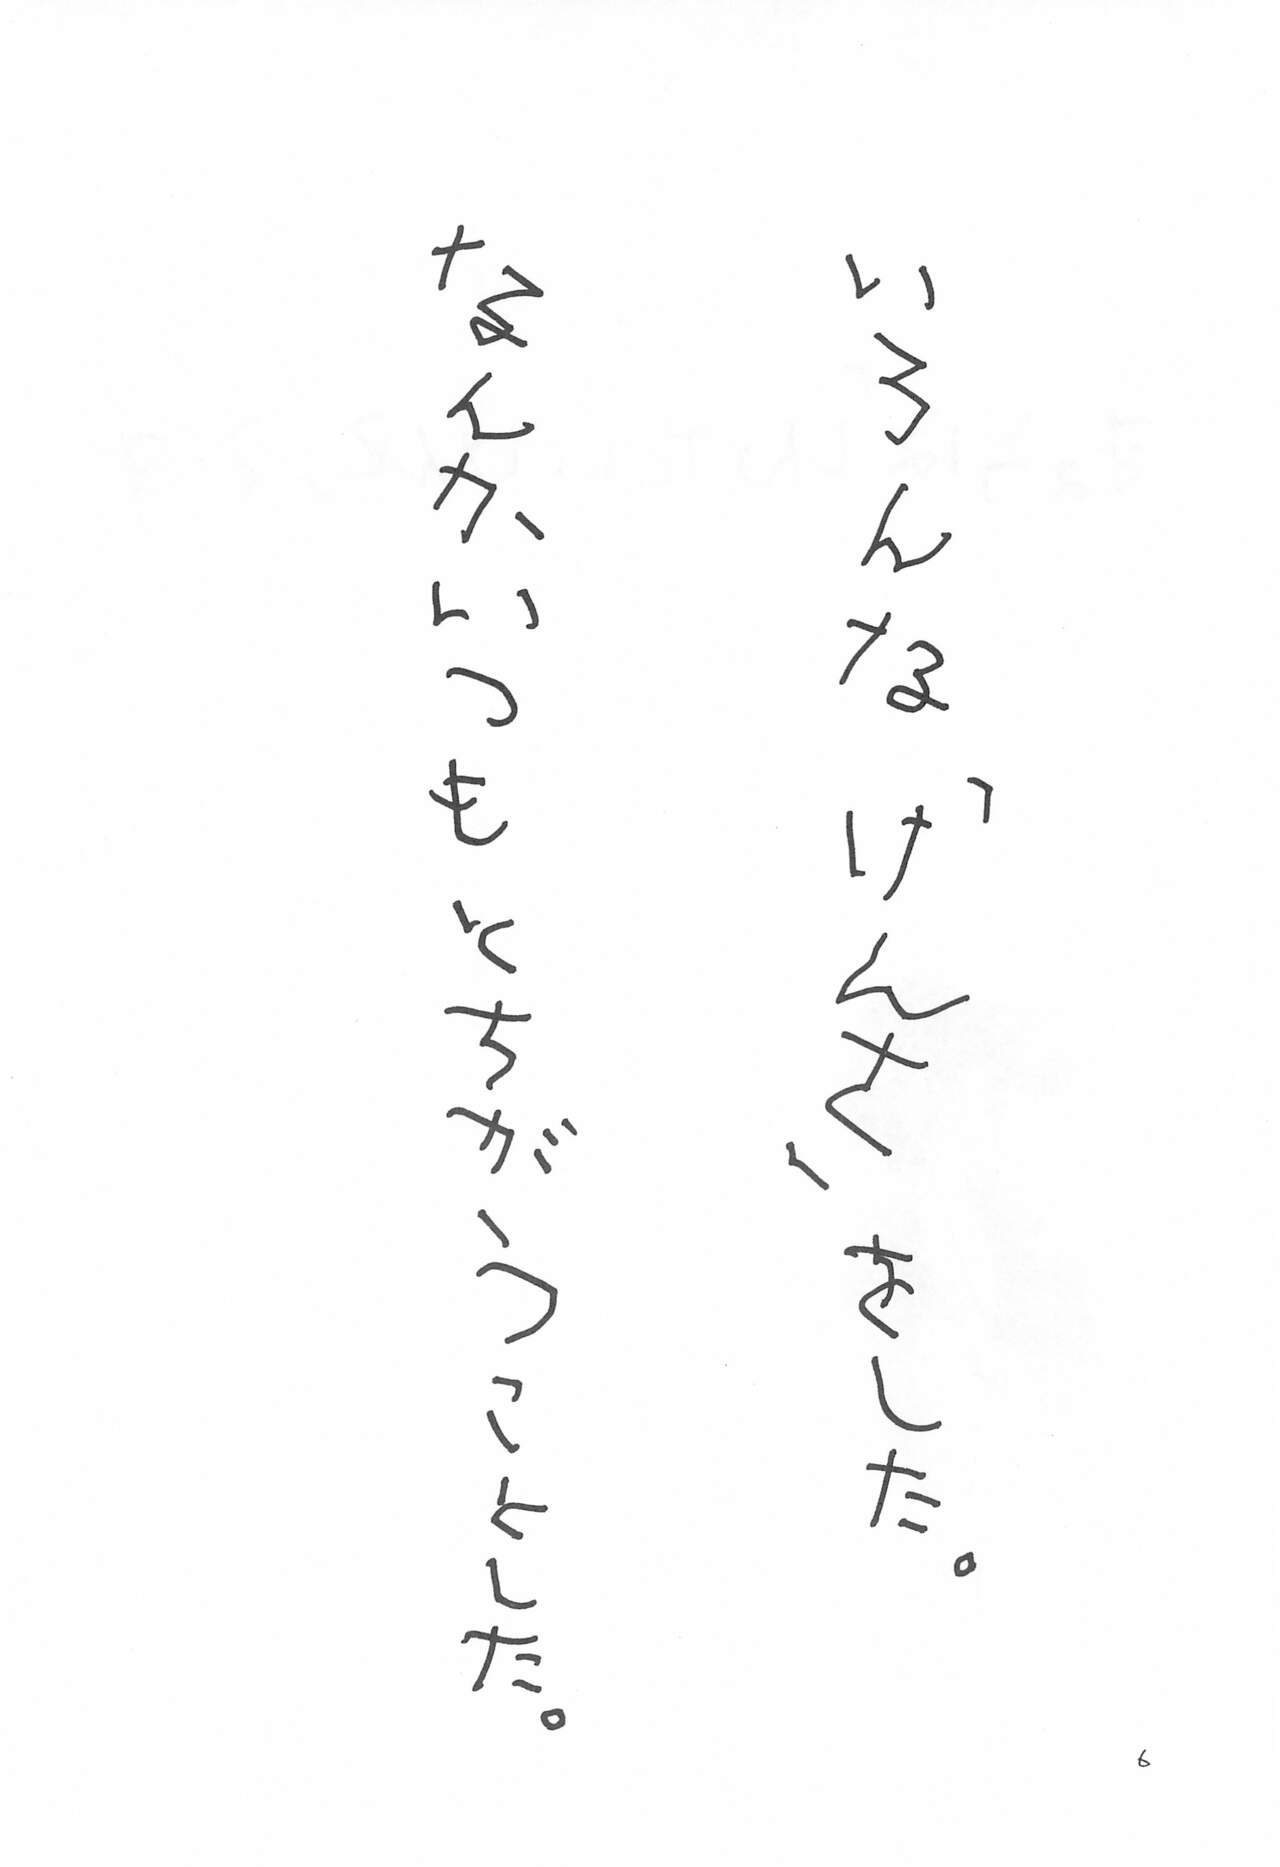 いろんな「けんさ」をした。
なんかいつもとちがうことした。
6